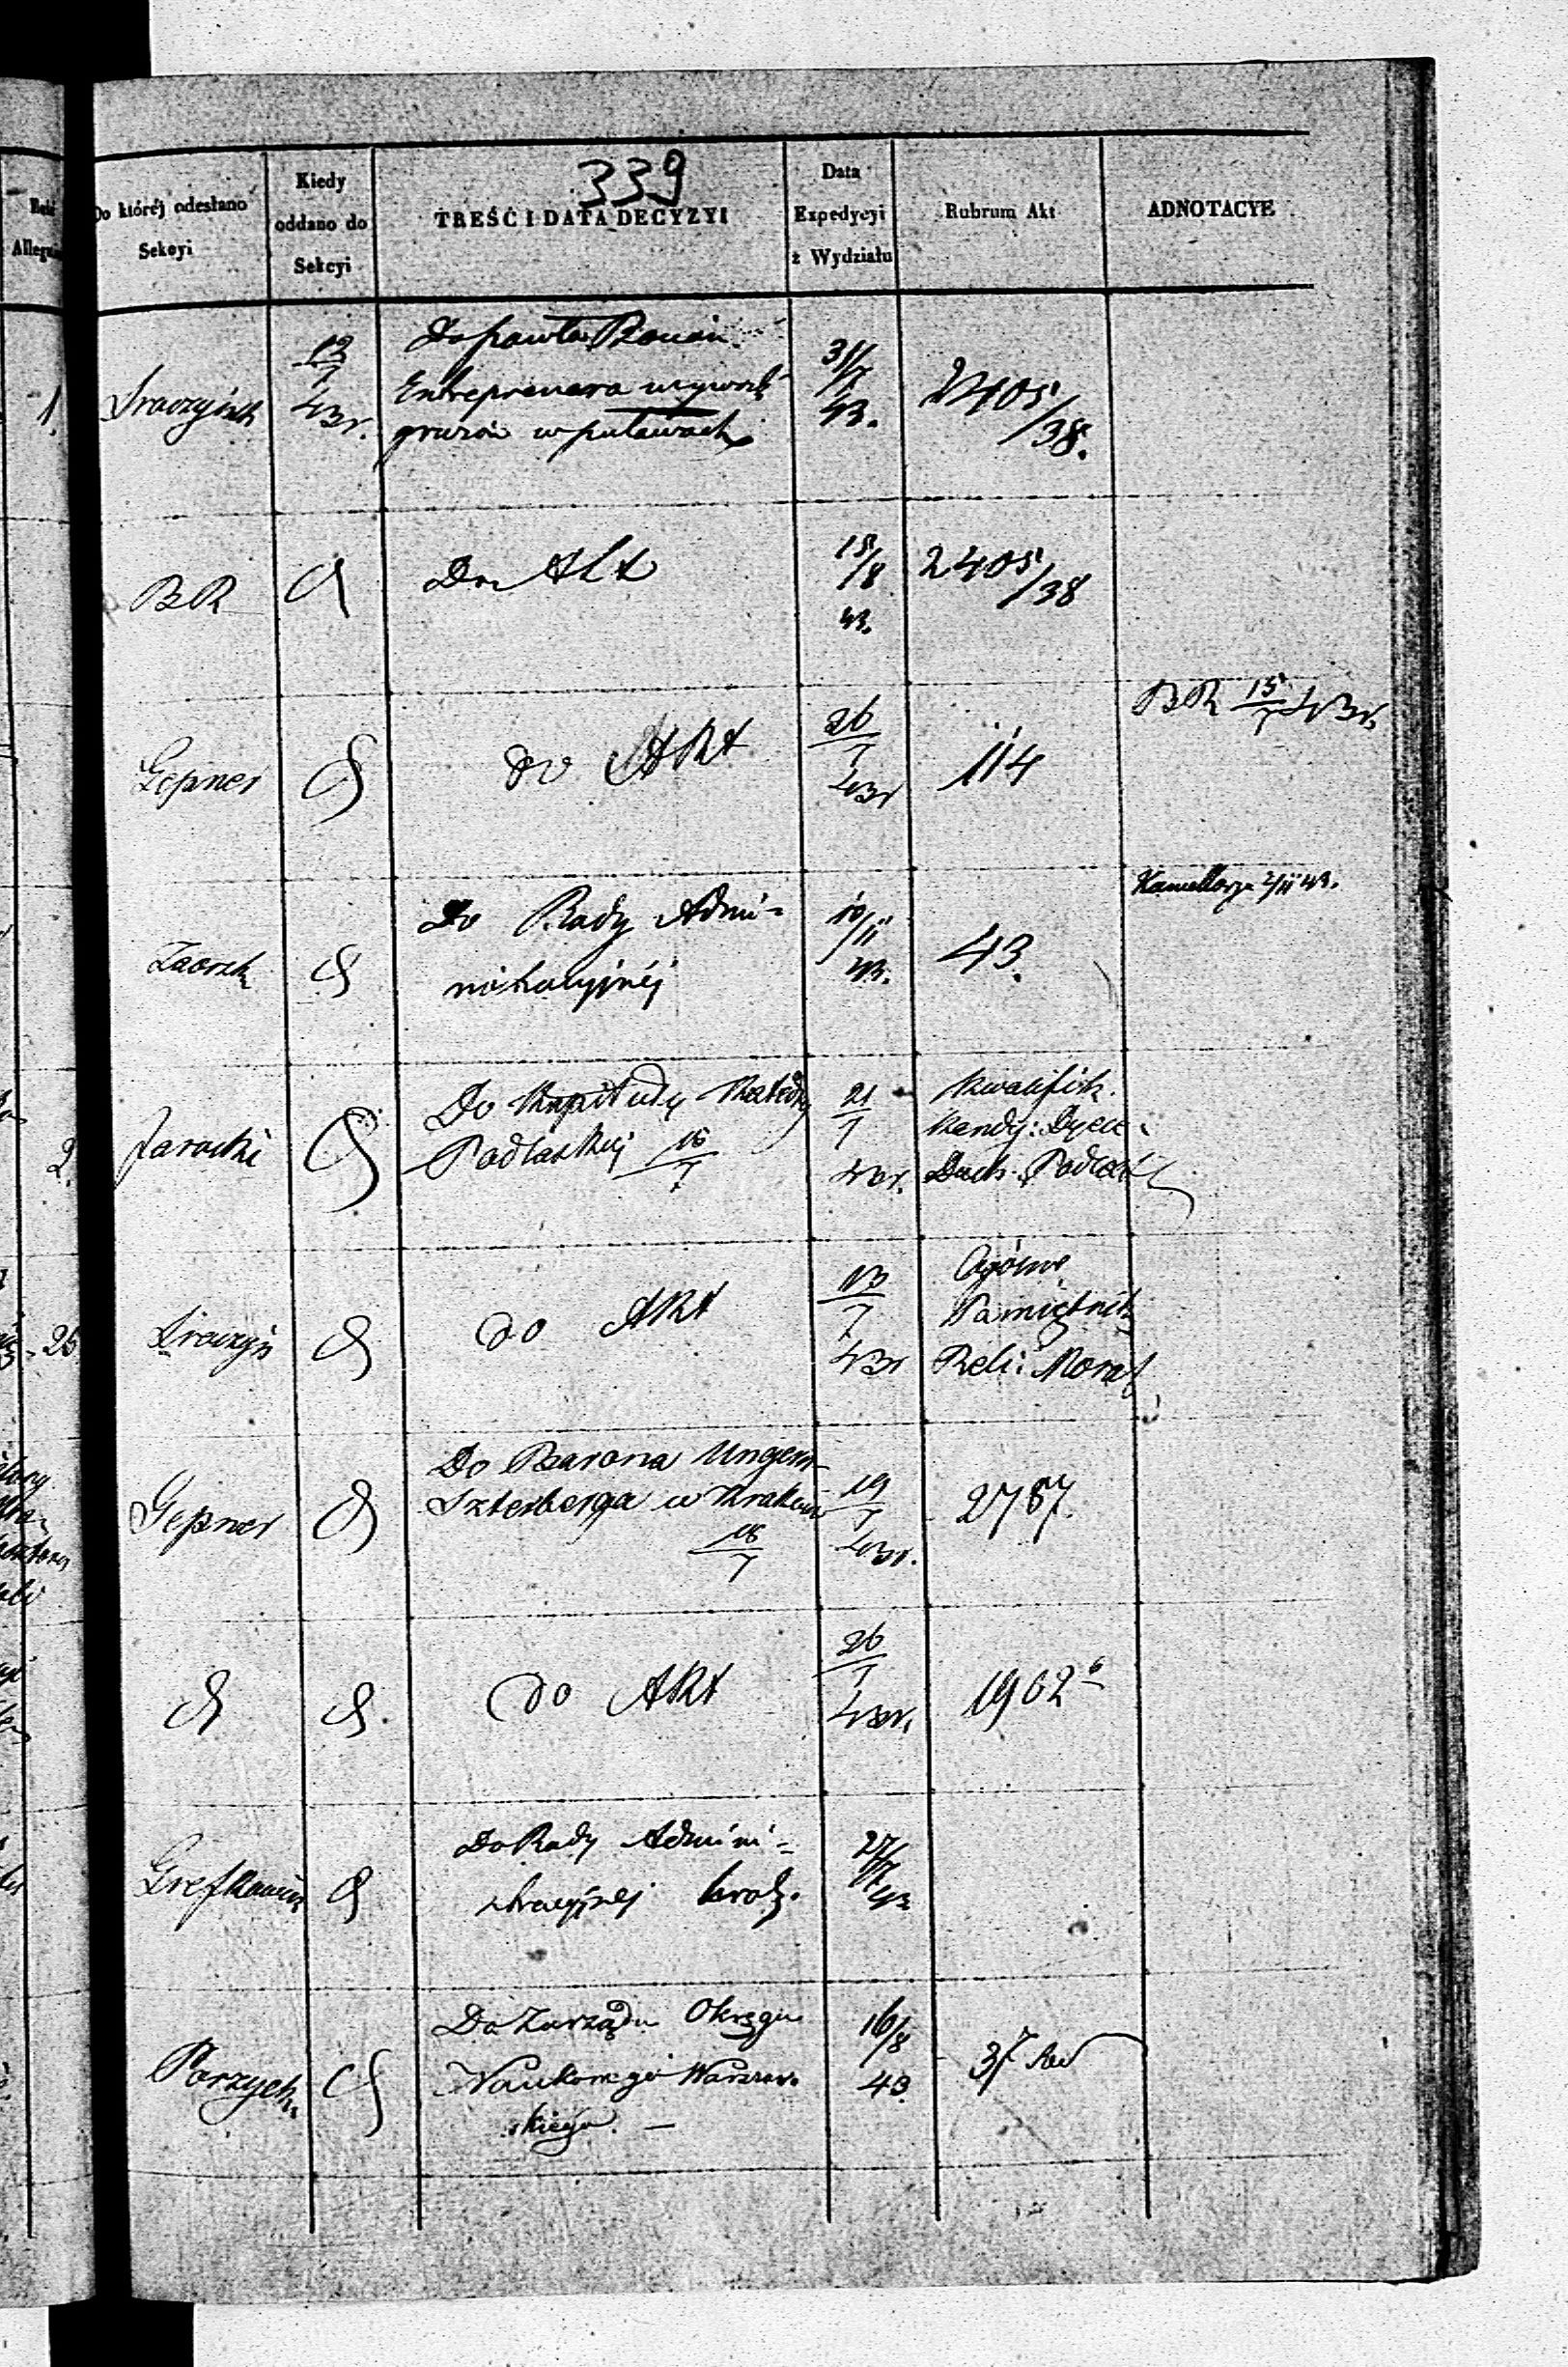 339
Do któréj odesłano
Sekcyi
Kiedy
oddano do
Sekcyi
TREŚĆ I DATA DECYZYI
Data
Expedycyi
z Wydziału
Rubrum Akt
ADNOTACYE
1.
12/7
43 r.
Do Pawła
Entreprenera
gruzów w Puławach
31/7
43.
2405/38.
BR
Do Akt
15/8
43.
2405/38
Gepner
do Akt
26/7
43 r
114
BR 15/7 43 r.
Do Rady Admi-
nistracyjnéj
10/11
43.
43.
2/11 43.
2.
Jarocki
Do Kapituły Katedr
Podlaskiej 16/7
21/7
43 r.
Kwalifik.
Kandy: Dyece.
Duch. Podlask
26
do Akt
13/7
43 r
Ogólne
Pamiętnik
Reli: Moral
Gepner
Do Barona Ungern
Szternberga w Krakowie
16/7
19/7
43 r.
2787.
do Akt
26/7
43 r.
1962
Do Rady Admini-
stracyjnej Król.
27/7
43
Do Zarządu Okręgu
Naukowego Warszaw
skiego. —
16/8
43
37